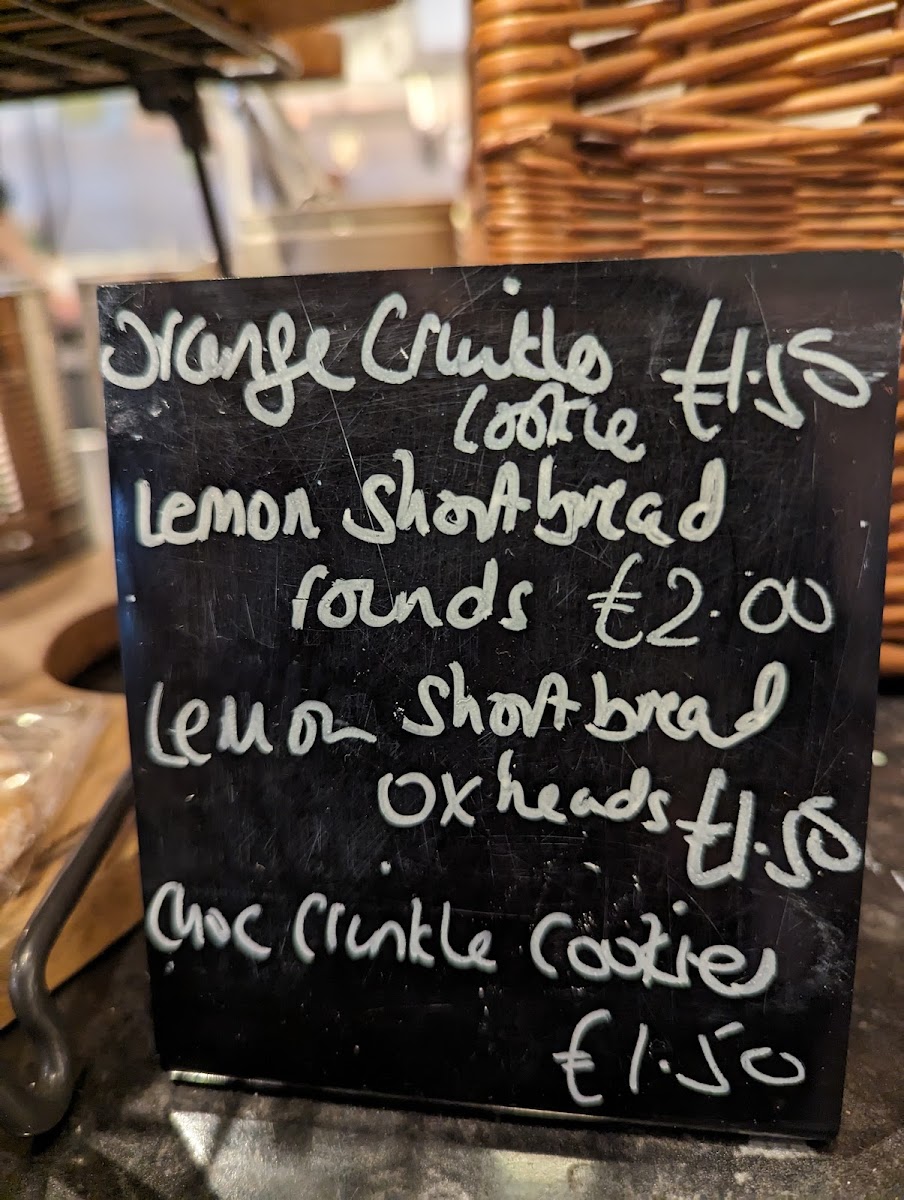 Orange Crinkle £1.50
Cookie
Lemon Shortbread
rounds £2.00
Lemon Shortbread
Ox heads £1.50
Choc Crinkle Cookies
£1.50